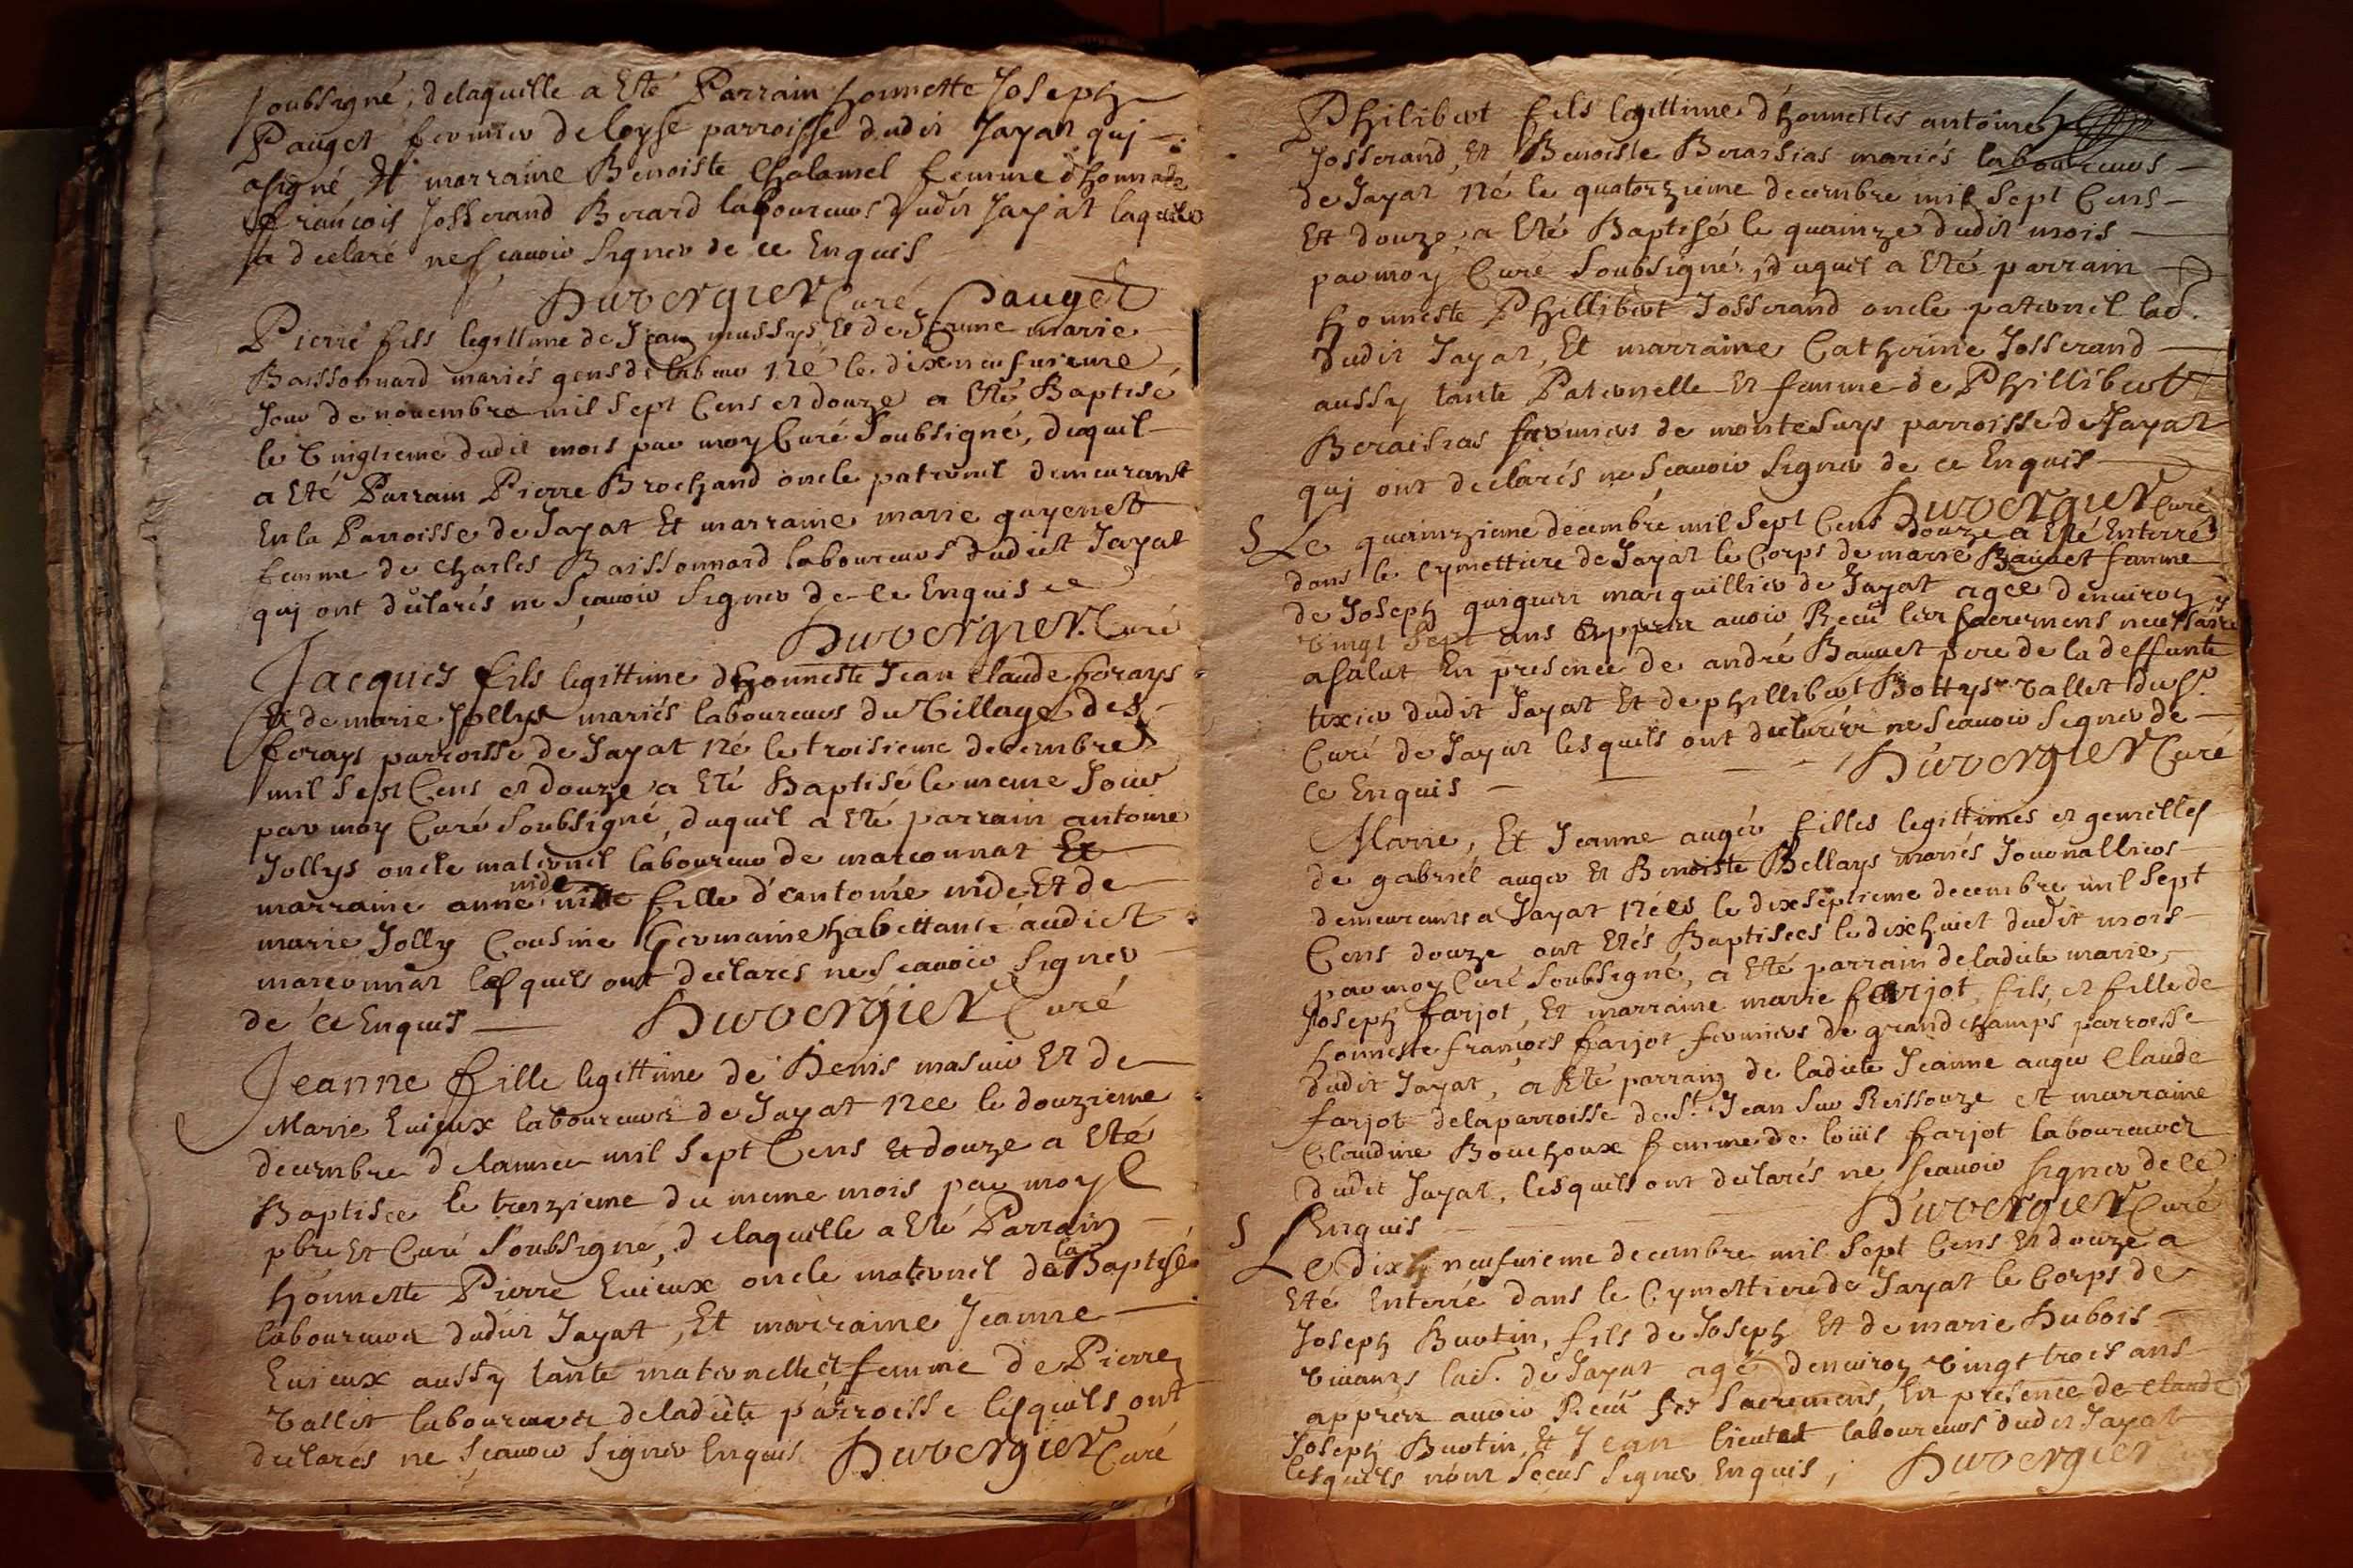 soubsigné, delaquelle a Eté Parrain honneste Joseph
Pauget fermier deloyse parroisse dudit Jayat quj
asigné Et marraine Benoiste Chalamel femme dhonneste
François Josserand Berard laboureurs dudit Jayat laquelle
a declaré nescauoir signer de ce Enquis
Duvergier Curé Pauget
Pierre fils legittime de Jean mussys et de Jeanne marie
Baissonnard mariés gens de labeur né le dixneufuieme
Jour de nouembre mil sept Cens et douze a Eté Baptisé
le Vingtieme dudit mois par moy Curé soubsigné, duquel
a Eté Parrain Pierre Brochand oncle paternel demeurant
En la Parroisse de Jayat Et marraine marie guyenet
femme de charles Baissonnard laboureurs dudict Jayat
quj ont déclarés ne sçauoir signer de ce Enquis
Duvergier Curé
Jacques fils legittime dhonneste Jean Claude forays
Et de marie Jollys mariés laboureurs du Village des
forays parroisse de Jayat né le troisieme decembre
mil sept Cens et douze a Eté Baptisé le meme Jour
par moy Curé soubsigné, duquel a eté parrain antoine
Jollys oncle maternel laboureur de marconnat Et
nide
marraine anne fille d'antoine nide Et de
marie Jolly Cousine Germaine habittante audict
marconnat lesquels ont declarés ne scauoir signer
de ce Enquis Duvergier Curé
Jeanne fille legittime de Denis masuir Et de
Marie Euieux laboureurs de Jayat née le douzieme
decembre delannee mil sept Cens Et douze a Eté
Baptisee le treizieme du meme mois par moy
pbre Et Curé soubsigné, delaquelle a Eté Parrain
la
honneste Pierre Euieux oncle maternel de Baptisé
laboureur dudit Jayat, Et marraine Jeanne
Euieux aussy tante maternelle et femme de Pierre
Vallet laboureur deladicte parroisse lesquels ont
declarés ne sçauoir signer Enquis Duvergier Curé
Philibert fils legittime d'honnestes antoine
Josserand, Et Benoiste Beraisias mariés laboureurs
de Jayat né le quatorzieme decembre mil sept Cens
Et douze, a Eté Baptisé le quainze dudit mois
par moy Curé soubsigné, duquel a Eté parrain
honneste Phillibert Josserand oncle paternel lad.
dudit Jayat, Et marraine Catherine Josserand
aussy tante Paternelle et femme de Phillibert
Beraisias fermiers de montesuys parroisse de Jayat
quj ont declarés ne scauoir signer de ce Enquis
Duvergier Curé
S Le quainzieme decembre mil sept Cens douze a Eté Enterré
dans le Cymettiere de Jayat le Corps de marie Bauuet femme
de Joseph guiguin marguillier de Jayat agee denuiron
Vingt sept ans apprer auoir Receu les sacremens necessaire
asalut En presence de andré Bauuet pere de la deffunte
tixier dudit Jayat Et de phillibert Bottys Vallet du Sr
Curé de Jayat lesquels ont declarér ne scauoir signer de
ce Enquis Duvergier Curé
Marie, Et Jeanne auger filles legittimes et gemelles
de gabriel auger Et Benoiste Bellays mariés Journalliers
demeurants a Jayat nées le dixseptieme decembre mil sept
Cens douze ont Etés Baptisees le dixhuict dudit mois
par moy Curé soubsigné, a Eté parrain deladicte marie,
Joseph farjot, Et marraine marie farjot, fils, et fille de
honneste françois farjot fermiers de grandchamps parroisse
dudit Jayat, a Eté parrain de ladicte Jeanne auger Claude
farjot delaparroisse de St Jean sur Reissouze et marraine
Claudine Bouchoux femme de loüis farjot laboureur
dudit Jayat, lesquels ont declarés ne scauoir signer de ce
Enquis Duvergier Curé
S Le dix neufuieme decembre mil sept Cens et douze a
Eté Enterré dans le Cymettiere de Jayat le Corps de
Joseph Buotin, fils de Joseph Et de marie Dubois
Viuants lad. de Jayat agé denuiron Vingt trois ans
apprer auoir Receu ses sacremens, En presence de Claude
Joseph Buotin, Et Jean lieutat laboureurs dudit Jayat
lesquels nont sceus signer Enquis, Duvergier